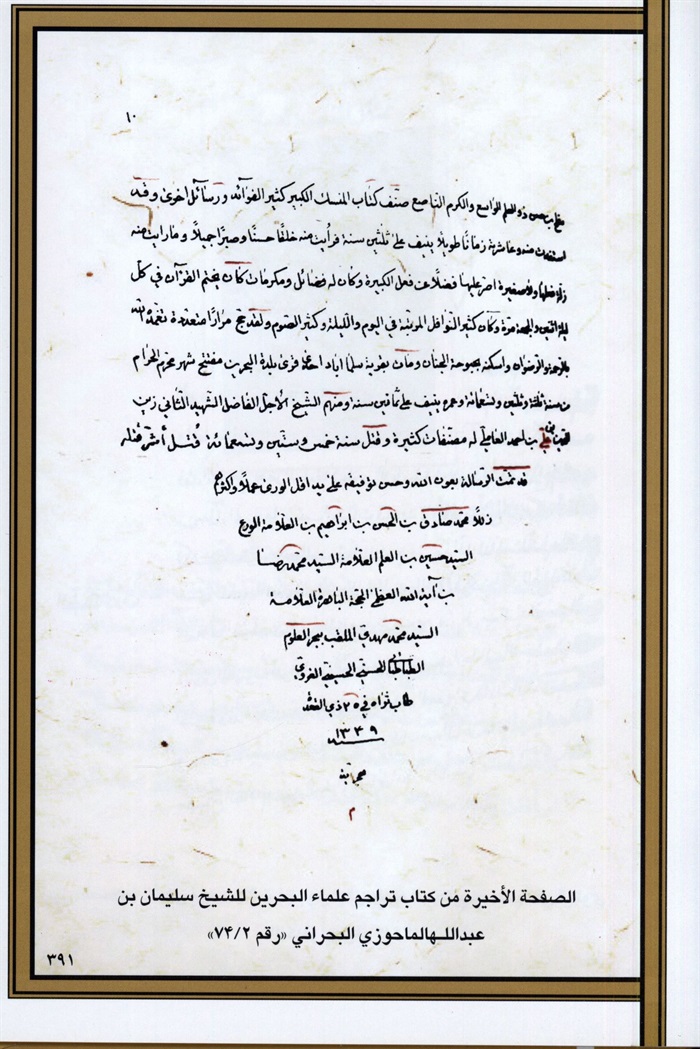 ١٠
ذو العلم الواسع والكرم الناصع صنف كتاب المنسك الكبير كثير الفوائد ورسائل اخرى وقد
استفدت منه وعاشرته زمانًا طويلًا ينيف على ثلثين سنة فرأيت منه خلقًا حسنًا وصبرًا جميلًا وما رأيت منه
زلة فعلها ولا صغيرة اصر عليها فضلًا عن فعل الكبيرة وكان له فضائل ومكرمات كان يختم القرآن في كل
ليلة اثنين والجمعة مرة وكان كثير النوافل المرتبة في اليوم والليلة وكثير الصوم ولقد حج مرارًا متعددة تغمده الله
بالرحمة والرضوان واسكنه بحبوحة الجنان ومات بقرية سلماباد احدى قرى بلدة البحرين مفتتح شهر محرم الحرام
من سنة ثلثة وثلثين وتسعمائة وعمره ينيف على ثمانين سنة ومنهم الشيخ الاجل الفاضل الشهيد الثاني زين
الدين بن علي بن احمد العاملي له مصنفات كثيرة وقتل سنة خمس وستين وتسعمائة قُتل أشر قتله
قد تمت الرسالة بعون الله وحسن توفيقه على يد اقل الورى عملًا واكثرهم
زللًا محمد صادق بن الحسن بن ابراهيم بن العلامة الورع
السيد حسين بن العلم العلامة السيد محمد رضا
بن آية الله العظمى الحجة الباهرة العلامة
السيد محمد مهدي الملقب ببحر العلوم
الطباطبائي الحسني الحسيني الغروي
طاب ثراه في ٢٥ ذي القعدة
سنة ١٣٤٩
هجرية
م
الصفحة الأخيرة من كتاب تراجم علماء البحرين للشيخ سليمان بن
عبداللـهالماحوزي البحراني «رقم ٧۴/٢»
٣٩١